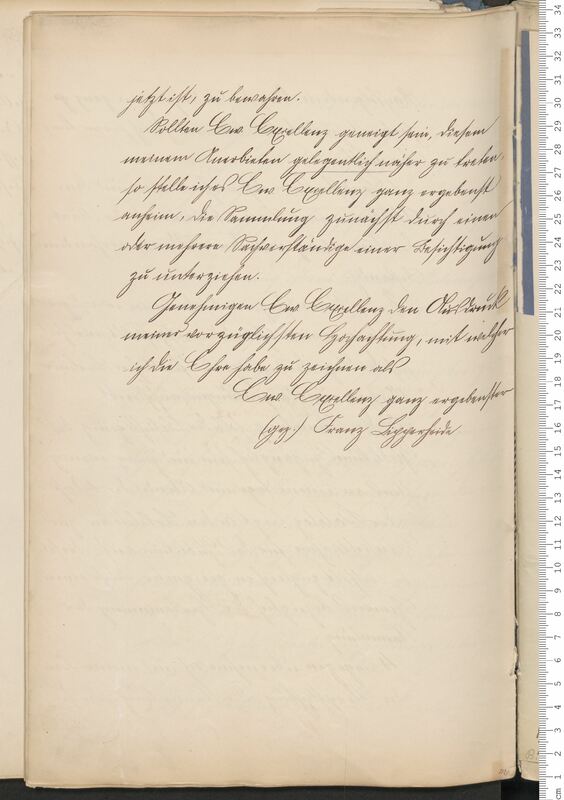 jetzt ist, zu bewahren.
Sollten Ew Excellenz geneigt sein, diesem
meinem Anerbieten gelegentlich näher zu treten,
so stelle ich es Ew Excellenz ganz ergebenst
anheim, die Sammlung zunächst durch einen
oder mehrere Sachverständige einer Besichtigung
zu unterziehen.
Genehmigen Ew Excellenz den Ausdruck
meiner vorzüglichsten Hochachtung, mit welcher
ich die Ehre habe zu zeichnen als
Ew Excellenz ganz ergebenster
(gez.) Franz Lipperheide